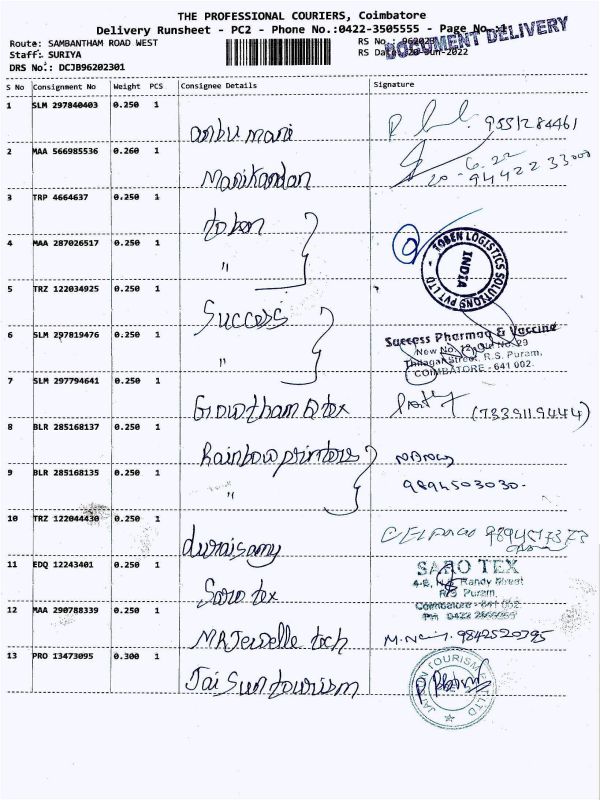 THE PROFESSIONAL COURIERS, Coimbatore
Delivery Runsheet - PC2 - Phone No.:0422-3505555 - Page No.:1
DOCUMENT DELIVERY
Route: SAMBANTHAM ROAD WEST
RS No.:
Staff: SURIYA
RS Date: 20-Jun-2022
DRS No.: DCJB96202301
S No Consignment No Weight PCS Consignee Details Signature
1 SLM 297840403 0.250 1
anbu mani 9551284461
2 MAA 566985536 0.260 1
Manikandan 20-6-22
94422 33000
3 TRP 4664637 0.250 1
token
4 MAA 287026517 0.250 1
"
TOBEN LOGISTICS SOLUTIONS PVT LTD
INDIA
5 TRZ 122034925 0.250 1
Success
6 SLM 297819476 0.250 1
"
Success Pharmaq & Vaccine
New No. 12, Old No. 29
Thilagar Street, R.S. Puram,
COIMBATORE - 641 002.
7 SLM 297794641 0.250 1
Gowtham Q tex (7339119444)
8 BLR 285168137 0.250 1
Rainbow printers
9 BLR 285168135 0.250 1
" 9894503030.
10 TRZ 122044430 0.250 1
duraisamy
11 EDQ 12243401 0.250 1
Saro tex
SARO TEX
Randy Street
R/S Puram,
Coimbatore - 641 002
12 MAA 290788339 0.250 1
MR Jewelle tech 9842520795
13 PRO 13473095 0.300 1
Jai Sun tourism